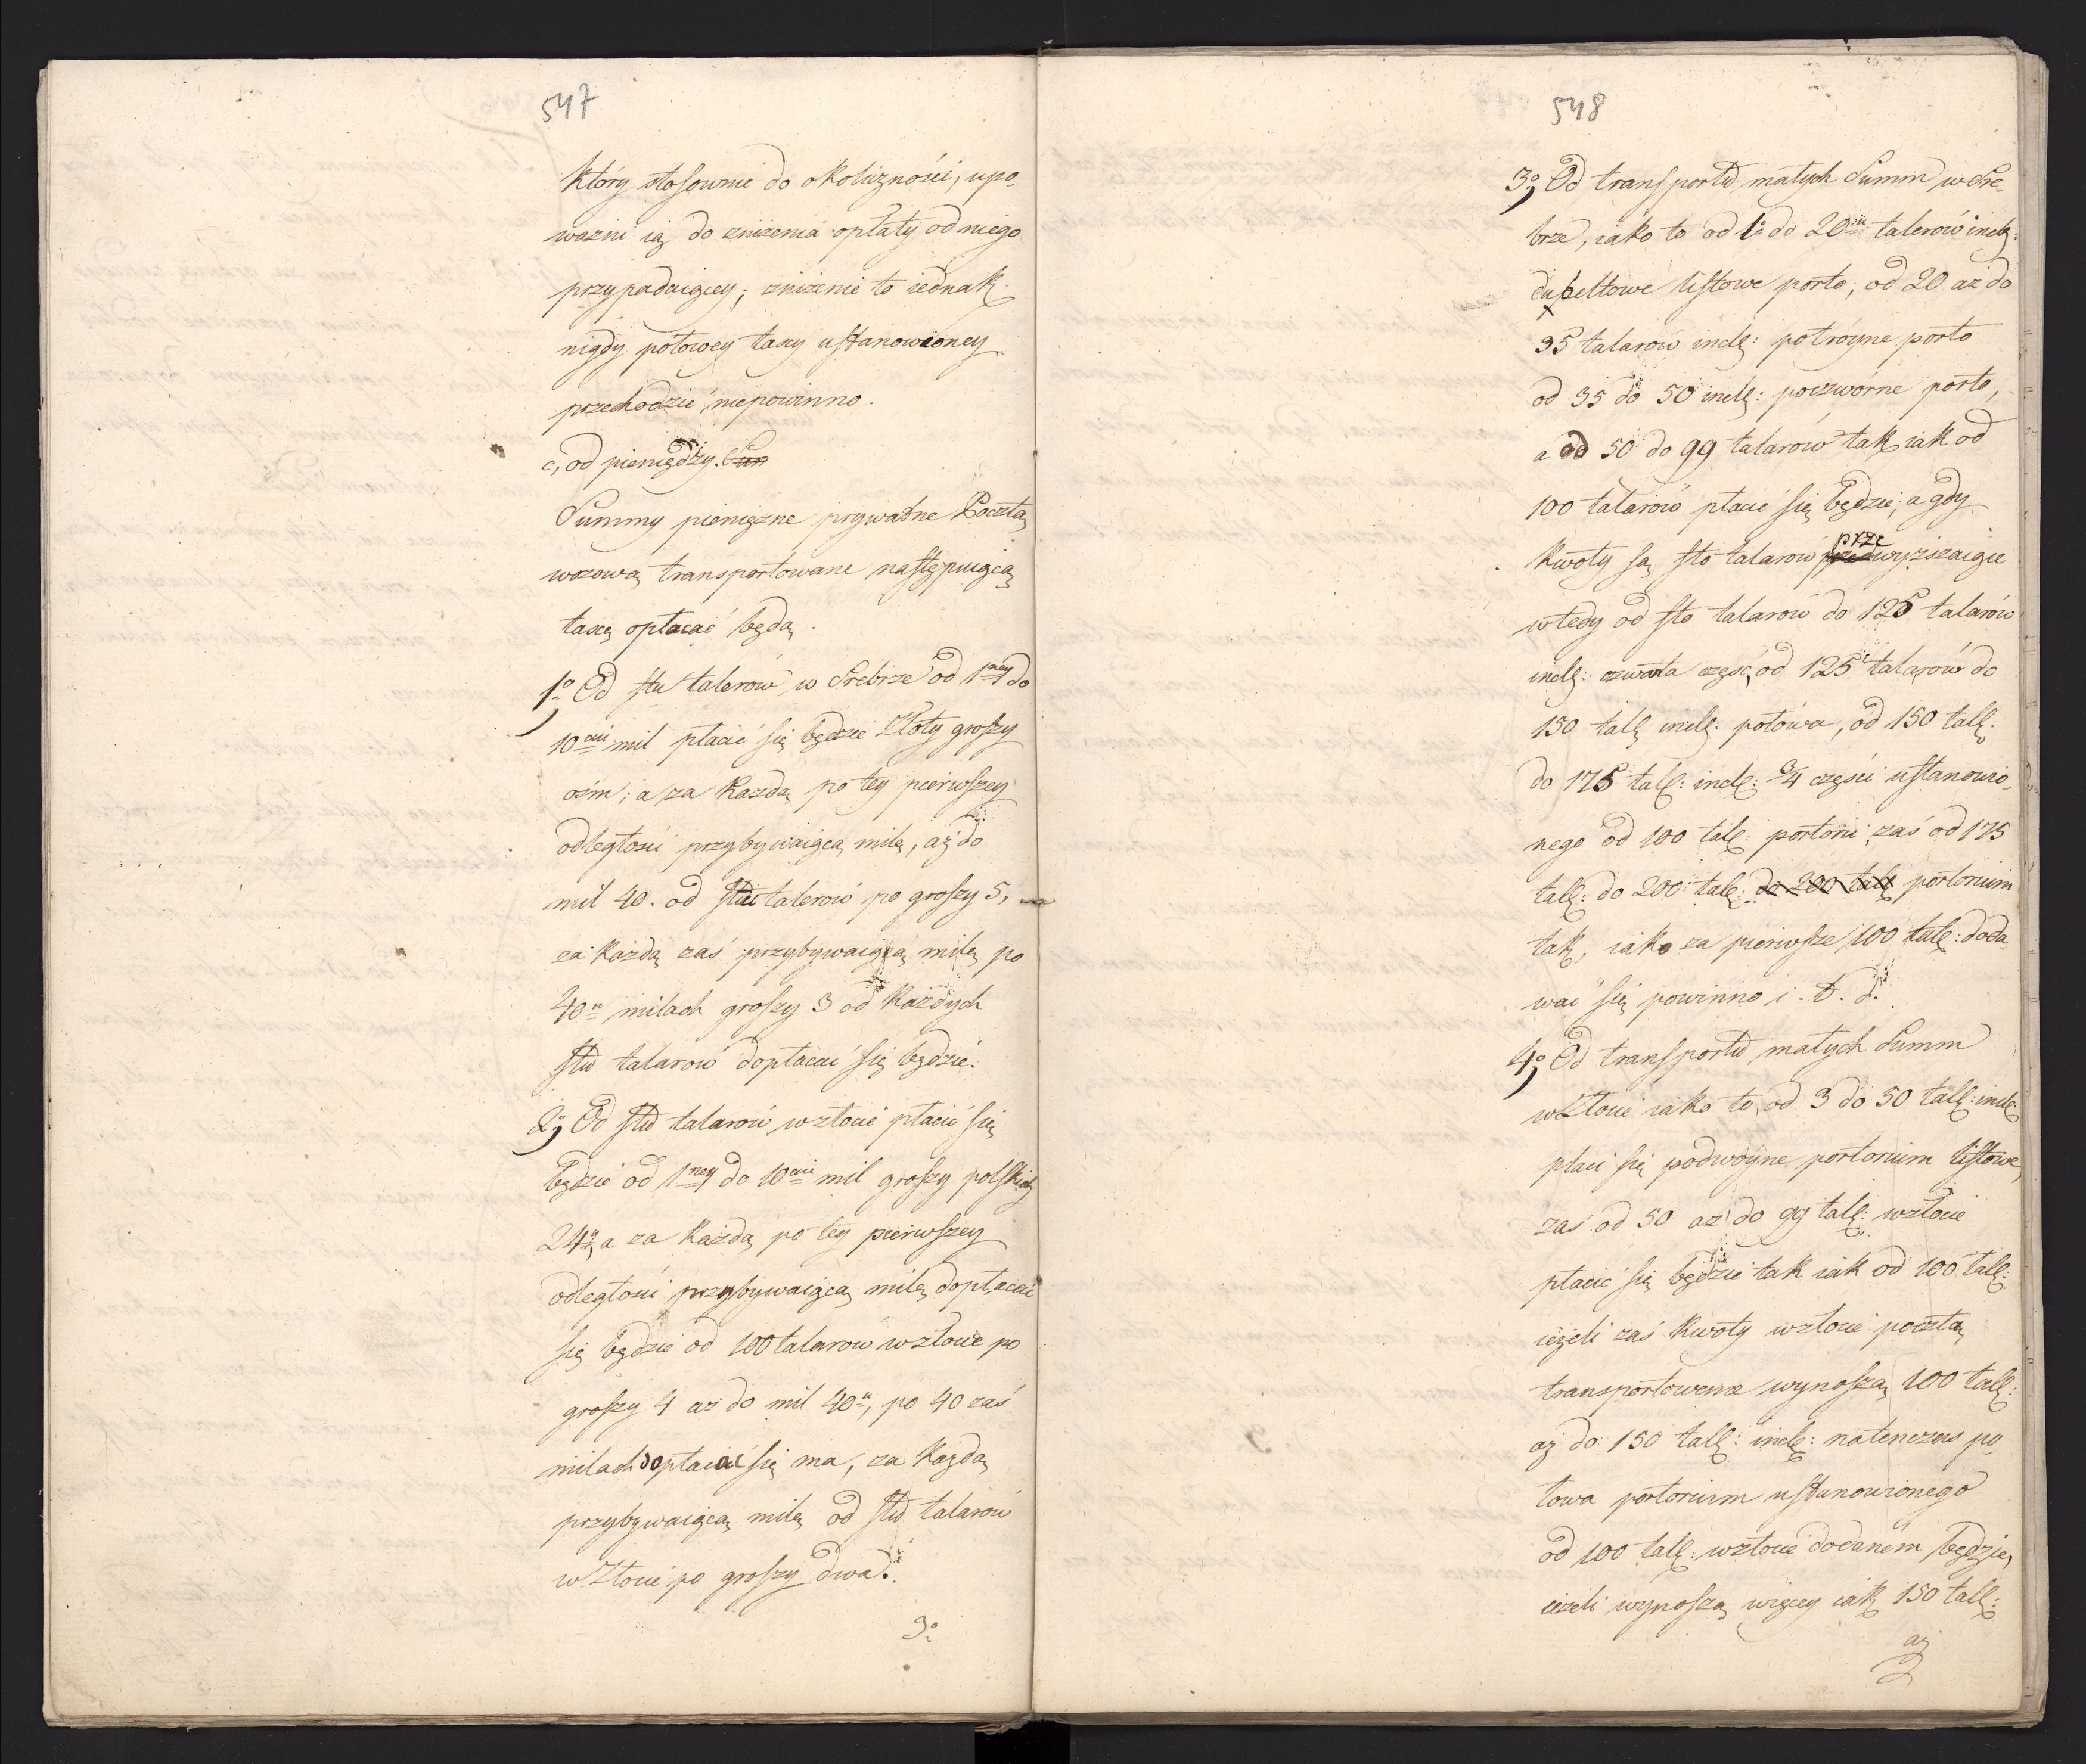 547
który stosownie do okoliczności, upo-
ważni ią do zniżenia opłaty od niego
przypadaiącey; zniżenie to iednak
nigdy połowey taxy ustanowioney
przechodzić niepowinno.
c, od pieniędzy. Sum
Summy pieniężne prywatne Pocztą
wozową transportowane następuiącą
taxę opłacać będą.
1o Od stu talerów w Srebrze od 1ney do
10ciu mil płacić się będzie Złoty groszy
ośm; a za każdą po tey pierwszey
odległości przybywaiącą milę, aż do
mil 40. od stu talerów po groszy 5,
za każdą zaś przybywaiącą milę po
40u milach groszy 3 od każdych
stu talarów dopłacać się będzie.
2o Od stu talarów w złocie płacić się
będzie od 1ney do 10ciu mil groszy polskich
24ry, a za każdą po tey pierwszey
odległości przybywaiącą milę dopłacać
się będzie od 100 talarów w złocie po
groszy 4 aż do mil 40u, po 40 zaś
milach dopłacać się ma, za każdą
przybywaiącą milę od stu talarów
w Złocie po groszy dwa.
3o
548
3o Od transportu małych Summ w Sre-
brze, iako to od 1o do 20tu talerów incl:
dubeltowe listowe porto, od 20 aż do
35 talarów incl: potróyne porto
od 35 do 50 incl: poczwórne porto,
a od 50 do 99 talarów tak iak od
100 talarów płacić się będzie; a gdy
prze
kwoty są sto talarów przewyższaiące
wtedy od sto talarów do 125 talarów
incl: czwarta część, od 125 talarów do
150 tall: incl: połowa, od 150 tall:
do 175 tall: incl: 3/4 części ustanowio-
nego od 100 tall: portorii, zaś od 175
tall: do 200 tall: do 200 tall portorium
tak, iako za pierwsze 100 tall: doda
wać się powinno i. t. d.
4o Od transportu małych Summ
w Złocie iako to, od 3 do 50 tall: incl:
płaci się podwóyne portorium listowe,
zaś od 50 aż do 99 tall: w złocie
płacić się będzie tak iak od 100 tall:
ieżeli zaś kwoty w złocie pocztą
transportowane wynoszą 100 tall:
aż do 150 tall: incl: natenczas po
łowa portorium ustanowionego
od 100 tall: w złocie dodaném będzie,
ieżeli wynoszą więcey iak 150 tall:
aż